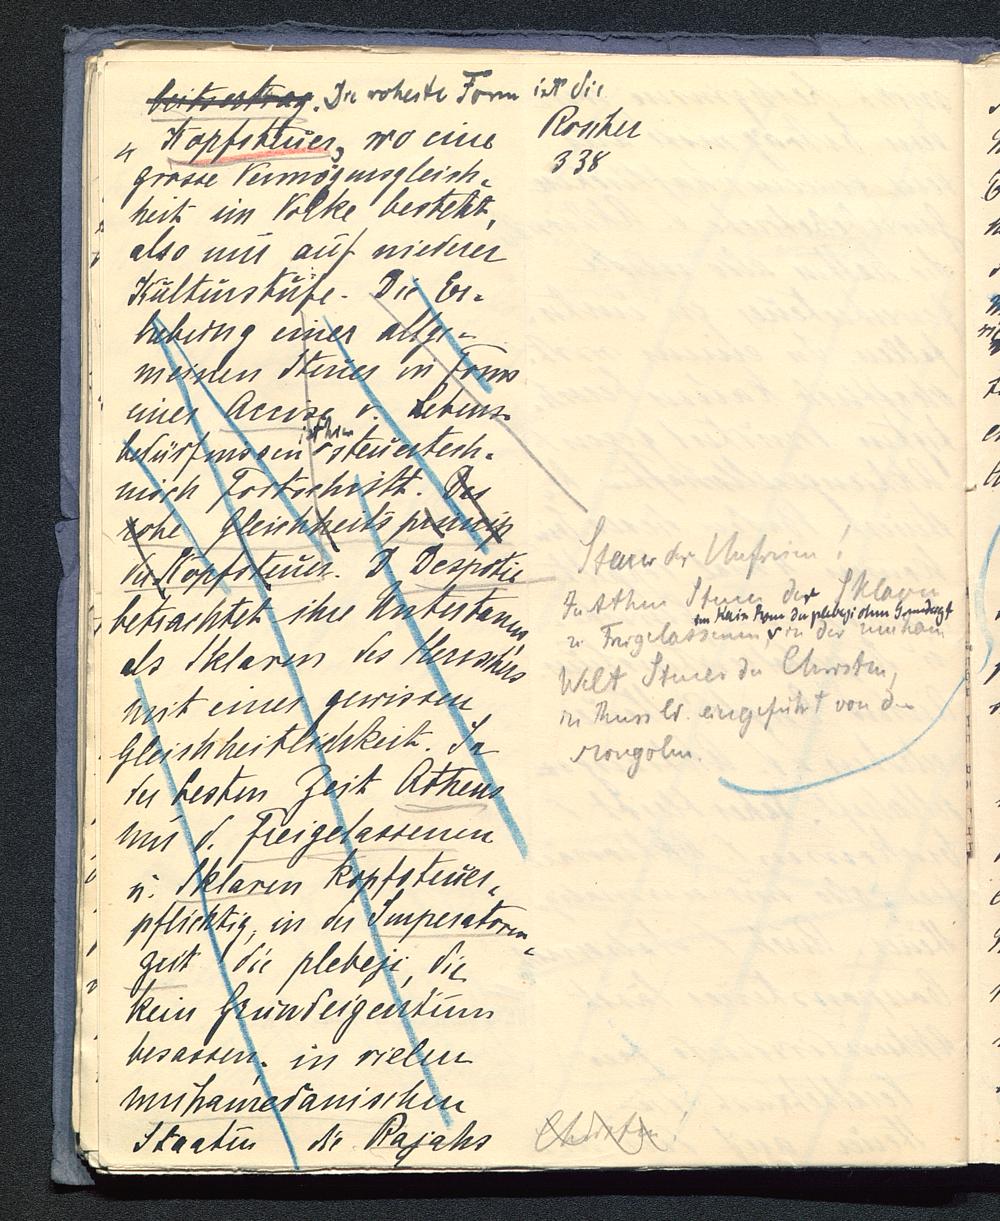 Die roheste Form ist die
Kopfsteuer, wo eine
grosse Vermögensgleich-
heit im Volke besteht,
also nur auf niederer
Kulturstufe. Die Er-
hebung einer allge-
meinen Steuer in Form
einer Accise v. Lebens-
bedürfnissen ist hier steuertech-
nisch Fortschritt. Das
rohe Gleichheitsprincip
der Kopfsteuer. D. Despotie
betrachtet ihre Untertanen
als Sklaven des Herrschers
mit einer gewissen
Gleichheitlichkeit. In
der besten Zeit Athens
nur d. Freigelassenen
u. Sklaven kopfsteuer-
pflichtig, in der Imperatoren-
zeit die plebeji, die
kein Grundeigentum
besassen. in vielen
muhamedanischen
Staaten die Rajahs
Roscher
338
Steuer der Unfreien!
In Athen Steuer der Sklaven
u. Freigelassenen, im Kais. Rom der plebeji ohne Grundbesitz, in der muham
Welt Steuer der Christen,
in Russld. eingeführt von den
Mongolen.
Christen!